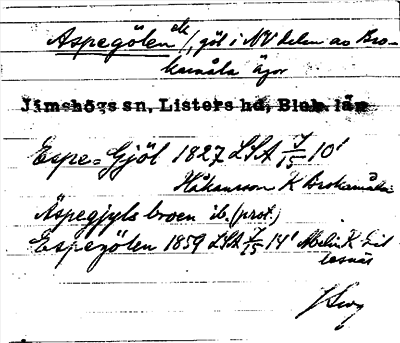 Aspegölen ek/, göl i NV delen av Bro-
kamåla ägor
Jämshögs sn, Listers hd, Blek. län
Espe=Gjöl 1827 LSA 7/15 10'
Håkansson K Brokamåla
Äspegjyls broen ib. (prot.)
Espegölen 1859 LSA 7/15 14' Melin K